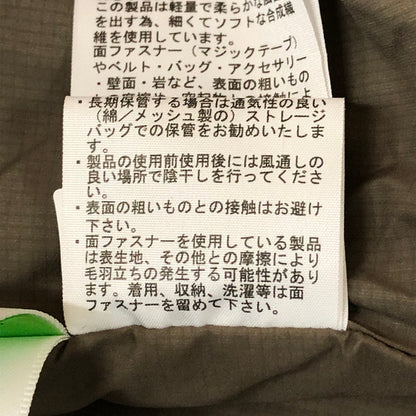 この製品は軽量で柔らかな風
を出す為、細くてソフトな合成繊
維を使用しています。
面ファスナー（マジックテープ）
やベルト・バッグ・アクセサリー
・壁面・岩など、表面の粗いもの
・長期保管する場合は通気性の良い
（綿／メッシュ製の）ストレージ
バッグでの保管をお勧めいたしま
す。
・製品の使用前使用後には風通しの
良い場所で陰干しを行ってくださ
い。
・表面の粗いものとの接触はお避け
下さい。
・面ファスナーを使用している製品
は表生地、その他との摩擦により
毛羽立ちの発生する可能性があり
ます。着用、収納、洗濯等は面
ファスナーを留めて下さい。